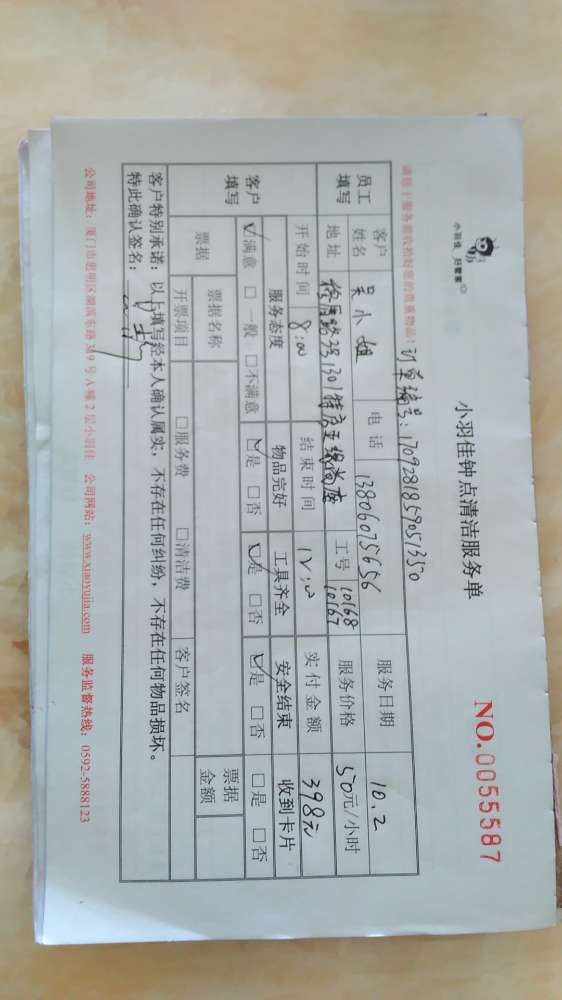 小羽佳 好管家
小羽佳钟点清洁服务单
NO.0055587
请您于服务前收拾好您的贵重物品! 订单编号:1709281859051350
员工填写 客户姓名 吴小姐 电话 13806075656 服务日期 10.2
地址 工号 10168 10167 服务价格 50元/小时
开始时间 8:00 结束时间 12:00 实付金额 398元
客户填写 服务态度 物品完好 工具齐全 安全结束 收到卡片
☑满意 □一般 □不满意 ☑是 □否 ☑是 □否 ☑是 □否 □是 □否
票据 票据名称 票据金额
开票项目 □服务费 □清洁费 客户签名
客户特别承诺:以上填写经本人确认属实,不存在任何纠纷,不存在任何物品损坏。
特此确认签名:
公司地址:厦门市思明区湖滨东路319号A幢2层小羽佳 公司网站:www.xiaoyujia.com 服务监督热线:0592-5888123